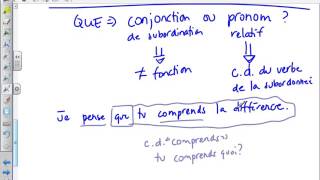 QUE => conjonction ou pronom ?
de subordination relatif
≠ fonction c.d. du verbe
de la subordonnée.
Je pense que tu comprends la différence.
c.d. comprends =>
tu comprends quoi?